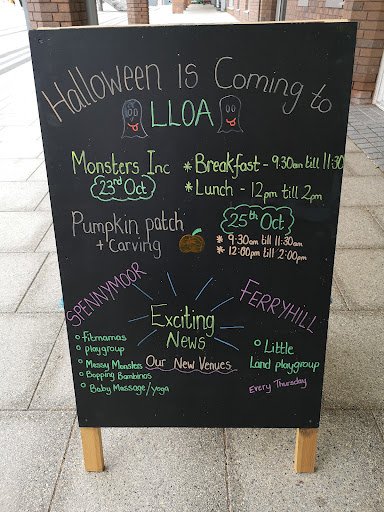 Halloween is Coming to
LLOA
Monsters Inc
23rd Oct
* Breakfast - 9:30am till 11:30
* Lunch - 12pm till 2pm
Pumpkin patch
+ Carving
25th Oct
* 9:30am till 11:30am
* 12:00pm till 2:00pm
SPENNYMOOR
FERRYHILL
Exciting
News
Our New Venues
Fitmamas
playgroup
Messy Monsters
Bopping Bambinos
Baby Massage/yoga
Little
Land playgroup
Every Thursday